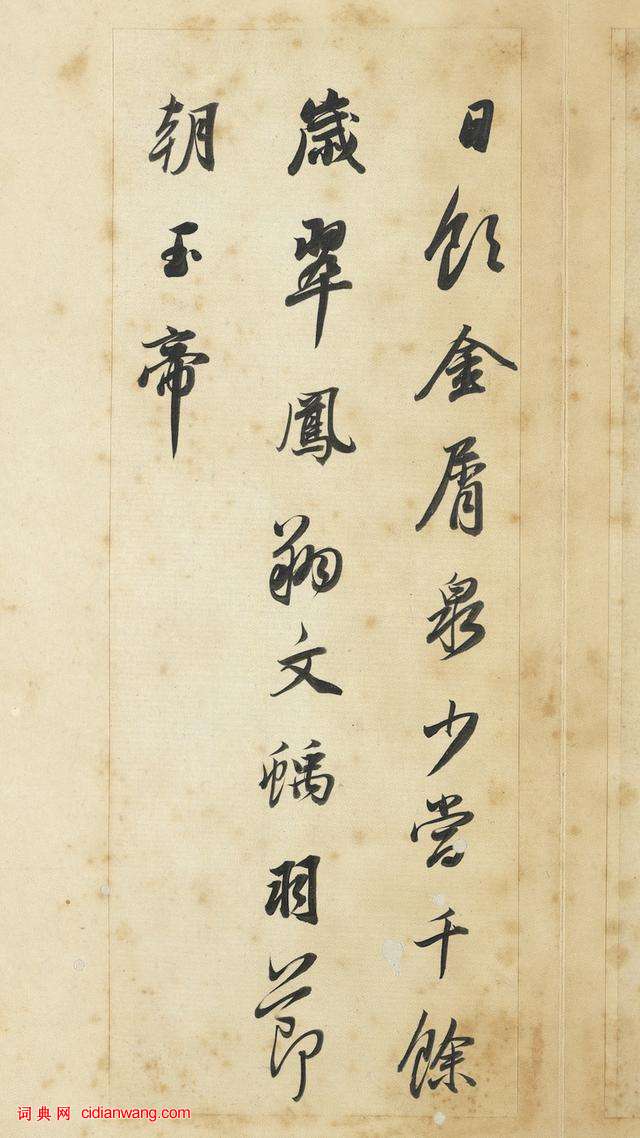 日飲金屑泉少當千餘
歲翠鳳翔文螭羽節
朝玉帝
词典网 cidianwang.com